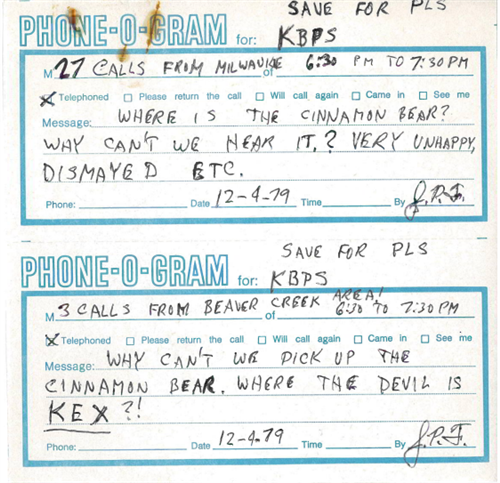 SAVE FOR PLS
PHONE-O-GRAM for: KBPS
M 27 CALLS FROM MILWAUKIE of 6:30 PM TO 7:30 PM
X Telephoned □ Please return the call □ Will call again □ Came in □ See me
Message: WHERE IS THE CINNAMON BEAR?
WHY CAN'T WE HEAR IT,? VERY UNHAPPY,
DISMAYED ETC.
Phone: Date 12-4-79 Time By J.P.F.
SAVE FOR PLS
PHONE-O-GRAM for: KBPS
M 3 CALLS FROM BEAVER CREEK AREA! of 6:30 TO 7:30 PM
X Telephoned □ Please return the call □ Will call again □ Came in □ See me
Message: WHY CAN'T WE PICK UP THE
CINNAMON BEAR. WHERE THE DEVIL IS
KEX?!
Phone: Date 12-4-79 Time By J.P.F.